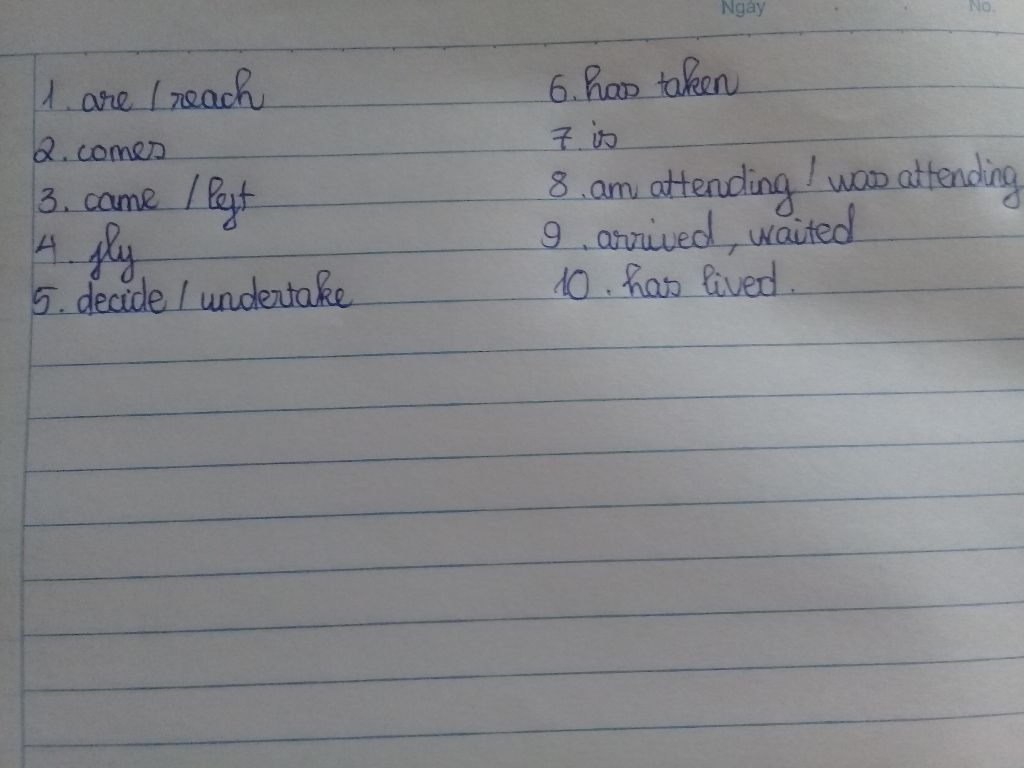 Ngày
No.
1. are / reach
2. comes
3. came / left
4. fly
5. decide / undertake
6. has taken
7. is
8. am attending / was attending
9. arrived, waited
10. has lived.